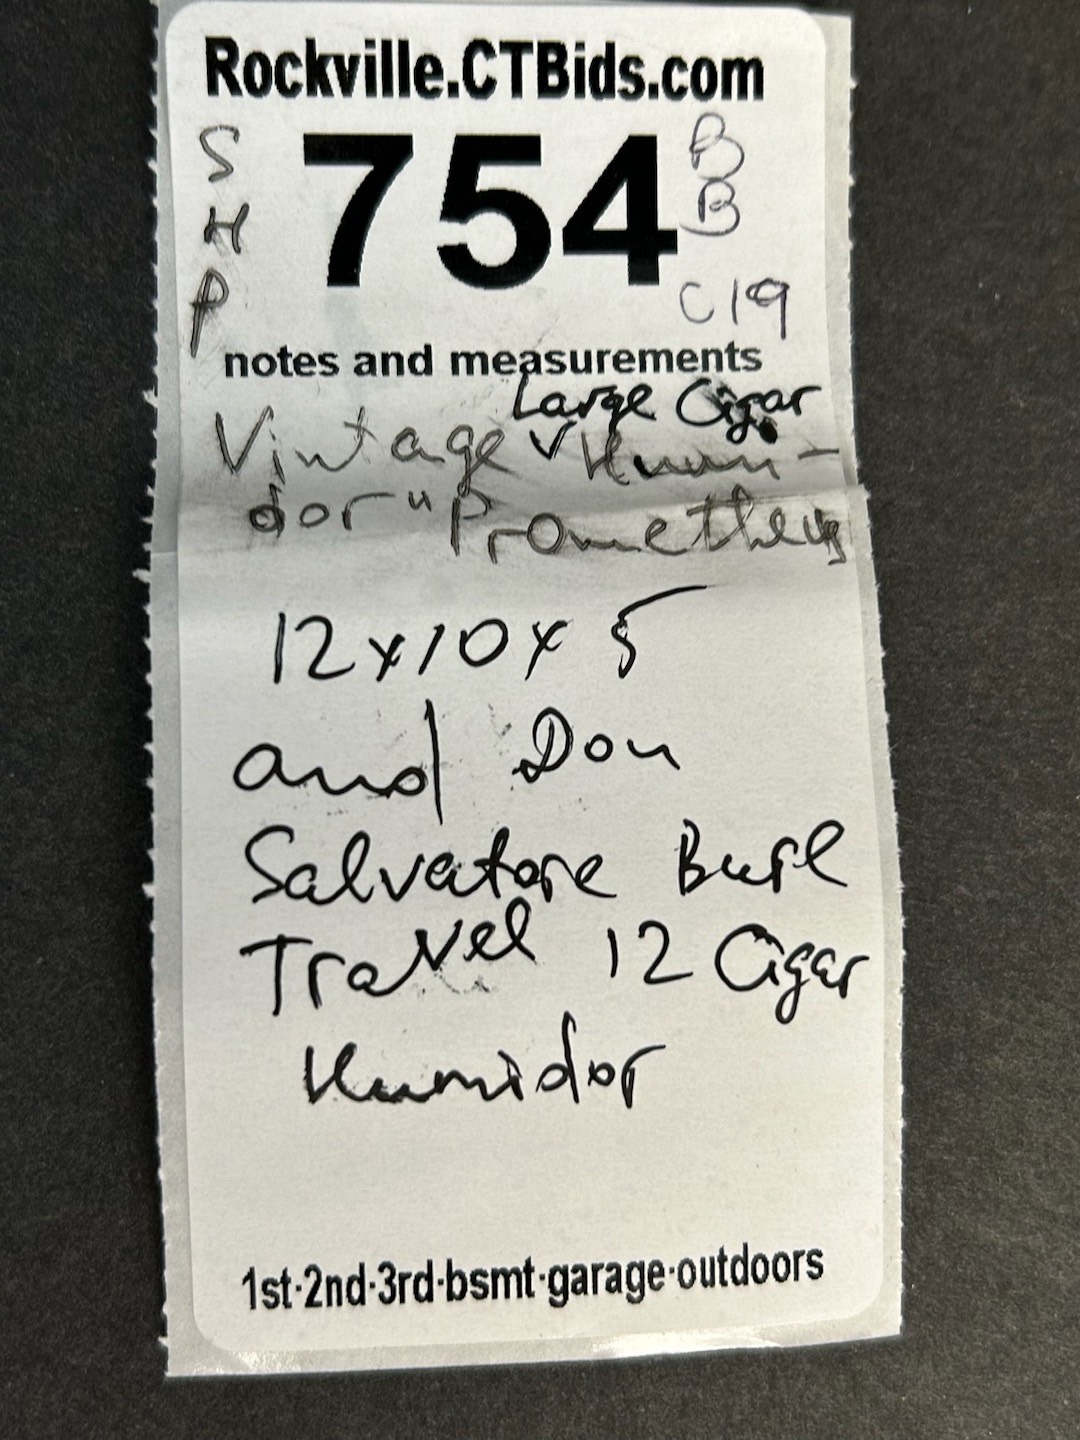 Rockville.CTBids.com
S 754 B
H B
P C19
notes and measurements
Large Cigar
Vintage v Humi-
dor "Prometheus
12x10x5
and Don
Salvatore Burl
Travel 12 Cigar
Humidor
1st·2nd·3rd·bsmt·garage·outdoors